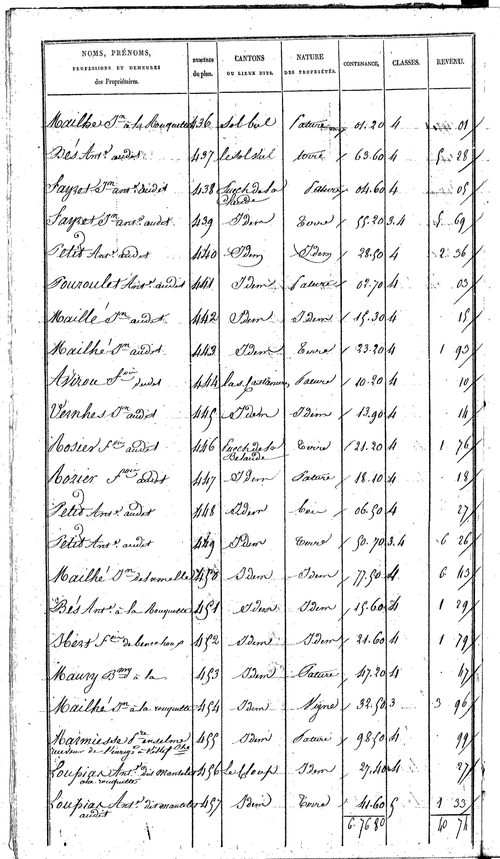 NOMS, PRÉNOMS, PROFESSIONS ET DEMEURES des Propriétaires. NUMÉROS du plan. CANTONS OU LIEUX DITS. NATURE DES PROPRIÉTÉS. CONTENANCE. CLASSES. REVENU.
Mailhé Jn à la Rouquette 436 Pature 01.20 4 01
Bés Ant. audit 437 terre 63.60 4 5 28
Fayret Jn ant. audit 438 Puech de la Pature 04.60 4 05
Fayret Jn ant. audit 439 Idem Terre 55.20 3.4 5 69
Petit Ant. audit 440 Idem Idem 28.50 4 2 36
Pouroulet Ant. audit 441 Idem Pature 02.70 4 03
Maillé Jn audit 442 Idem Idem 15.30 4 15
Mailhé Jn audit 443 Idem Terre 23.20 4 1 93
audit 444 Pature 10.20 4 10
Vernhes Jn audit 445 Idem Idem 13.90 4 14
Rosier audit 446 Puech de la Terre 21.20 4 1 76
Rozier audit 447 Idem Pature 18.10 4 18
Petit Ant. audit 448 Idem 06.50 4 27
Petit Ant. audit 449 Idem Terre 50.70 3.4 6 26
Mailhé Jn 450 Idem Idem 77.50 4 6 43
Bés Ant. à la Rouquette 451 Idem Idem 15.60 4 1 29
452 Idem Idem 21.60 4 1 79
Maury à la 453 Idem Pature 47.20 4 47
Mailhé Jn à la rouquette 454 Idem Vigne 32.50 3 3 96
455 Idem Pature 98.50 4 99
Loupias Ant. dit 456 Idem 27.40 4 27
à la rouquette
Loupias Ant. dit 457 Idem Terre 41.60 5 1 33
audit
6.76 80 40 74